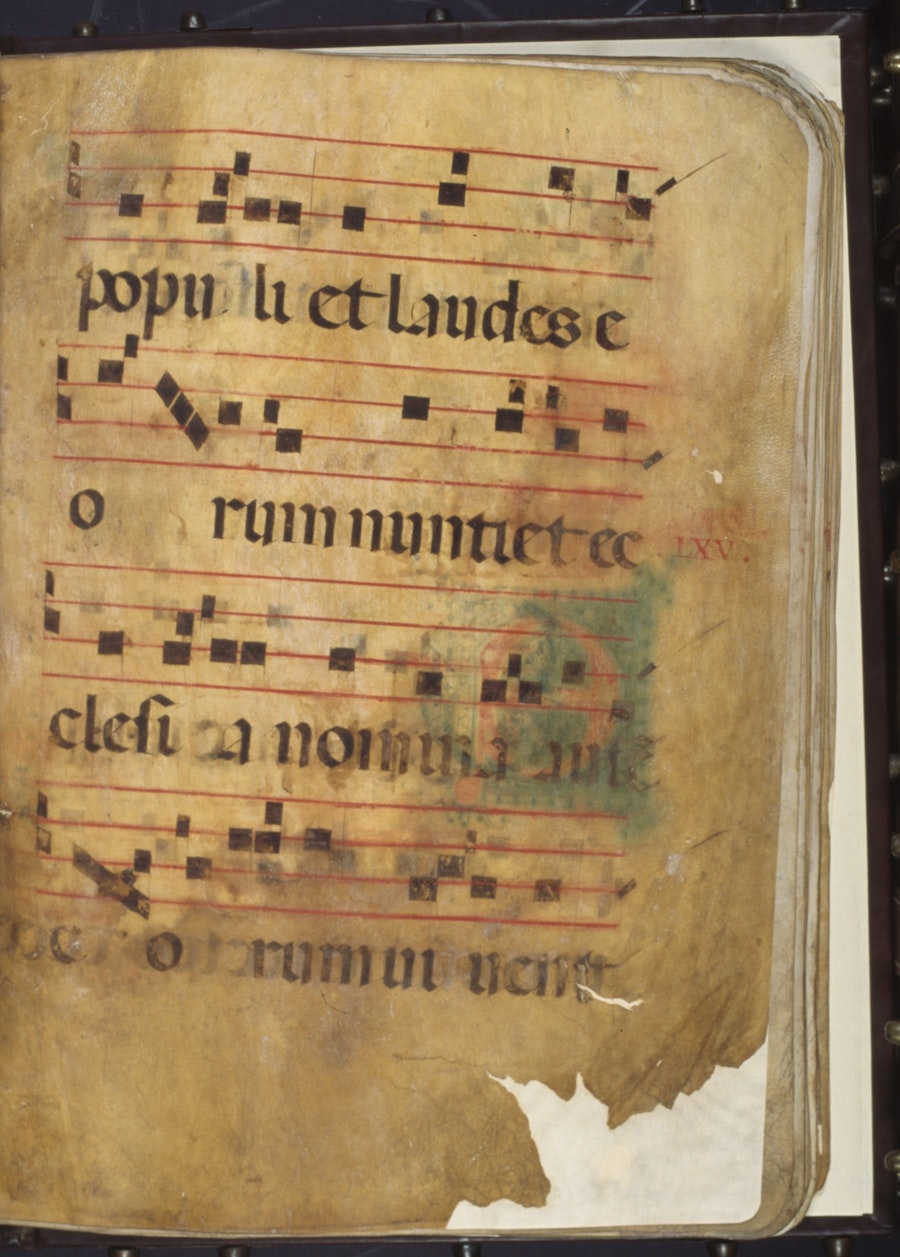 popu li et laudes e
o rum nuntiet ec
LXV.
clesi a nomina aute
o rum vi vent